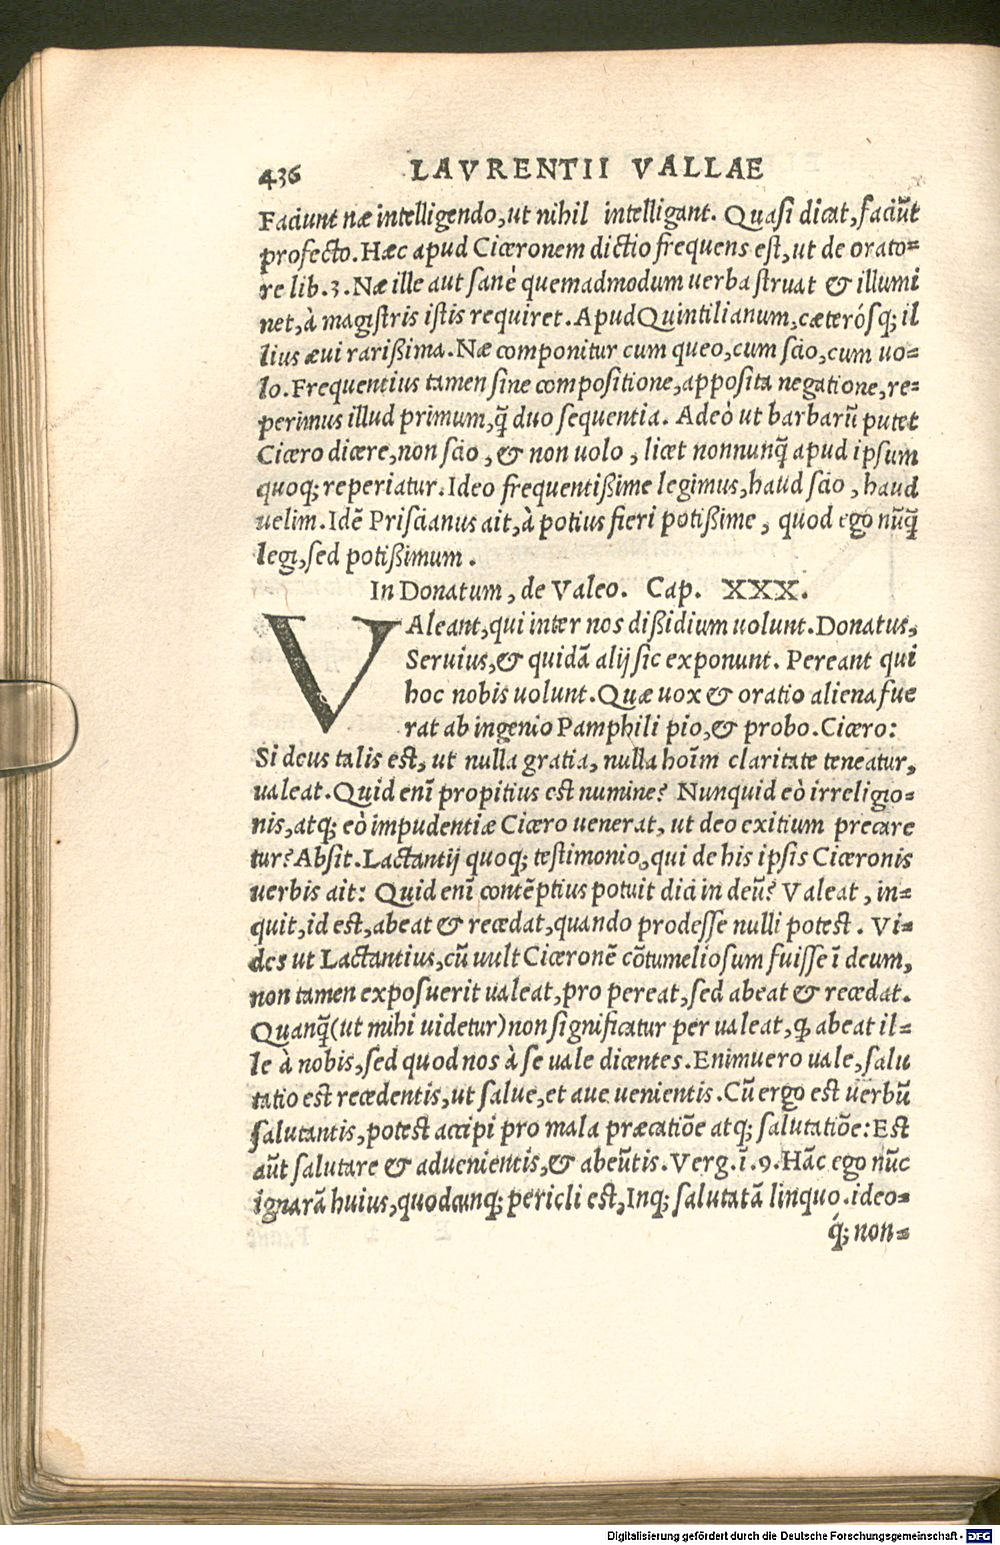 436 LAVRENTII VALLAE
Faciunt næ intelligendo, ut nihil intelligant. Quasi dicat, faciũt
profecto. Hæc apud Ciceronem dictio frequens est, ut de orato=
re lib. 3. Næ ille aut sanè quemadmodum uerba struat & illumi
net, à magistris istis requiret. Apud Quintilianum, cæterósq; il
lius æui rarißima. Næ componitur cum queo, cum scio, cum uo=
lo. Frequentius tamen sine compositione, apposita negatione, re=
perimus illud primum, q̃ duo sequentia. Adeò ut barbarũ putet
Cicero dicere, non scio, & non uolo, licet nonnunq̃ apud ipsum
quoq; reperiatur. Ideo frequentißime legimus, haud scio, haud
uelim. Idẽ Priscianus ait, à potius fieri potißime, quod ego nũq̃
legi, sed potißimum.
In Donatum, de Valeo. Cap. XXX.
VAleant, qui inter nos dißidium uolunt. Donatus,
Seruius, & quidã alij sic exponunt. Pereant qui
hoc nobis uolunt. Quæ uox & oratio aliena fue
rat ab ingenio Pamphili pio, & probo. Cicero:
Si deus talis est, ut nulla gratia, nulla hoĩm claritate teneatur,
ualeat. Quid enĩ propitius est numine? Nunquid eò irreligio=
nis, atq; eò impudentiæ Cicero uenerat, ut deo exitium precare
tur? Absit. Lactantij quoq; testimonio, qui de his ipsis Ciceronis
uerbis ait: Quid enĩ contẽptius potuit dici in deũ? Valeat, in=
quit, id est, abeat & recedat, quando prodesse nulli potest. Vi=
des ut Lactantius, cũ uult Ciceronẽ cõtumeliosum fuisse ĩ deum,
non tamen exposuerit ualeat, pro pereat, sed abeat & recedat.
Quanq̃ (ut mihi uidetur) non significatur per ualeat, ꝙ abeat il=
le à nobis, sed quod nos à se uale dicentes. Enimuero uale, salu
tatio est recedentis, ut salue, et aue uenientis. Cũ ergo est uerbũ
salutantis, potest accipi pro mala præcatiõe atq; salutatiõe: Est
aũt salutare & aduenientis, & abeũtis. Verg. ĩ. 9. Hãc ego nũc
ignarã huius, quodcunq; pericli est, Inq; salutatã linquo. ideo=
q́; non=
Digitalisierung gefördert durch die Deutsche Forschungsgemeinschaft - DFG